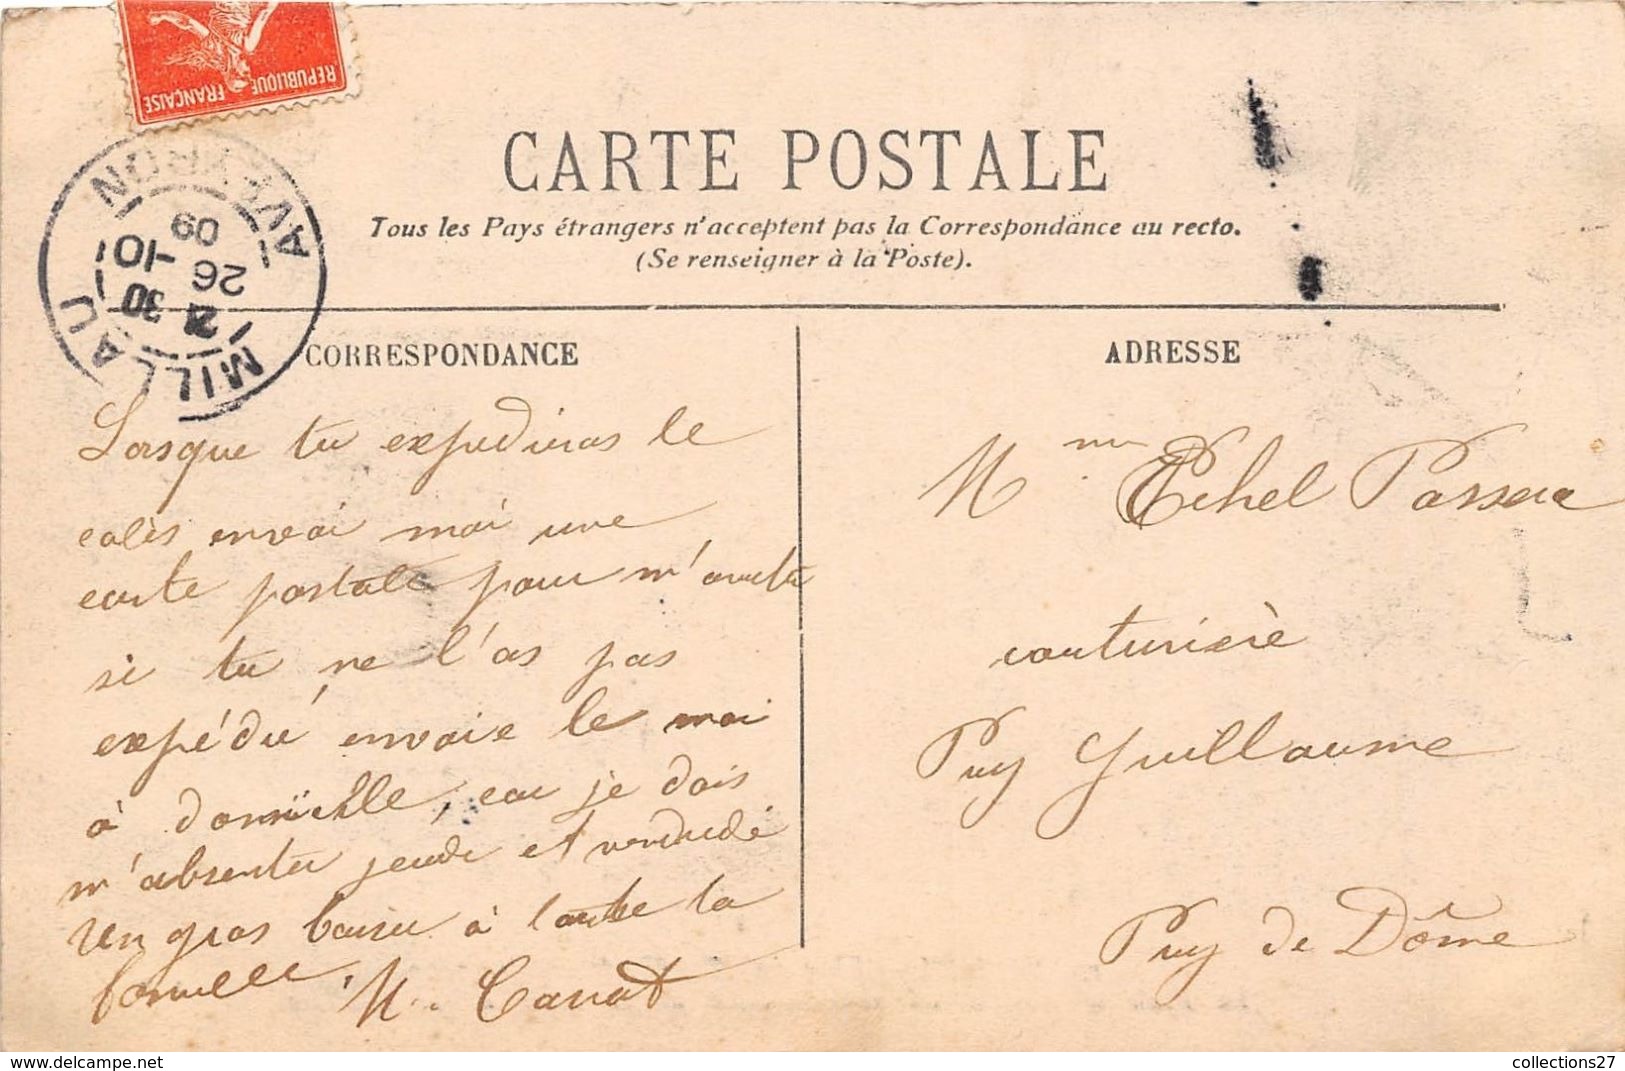 REPUBLIQUE FRANÇAISE
CARTE POSTALE
Tous les Pays étrangers n'acceptent pas la Correspondance au recto.
(Se renseigner à la Poste).
MILLAU
AVEYRON
30
26
10 09
CORRESPONDANCE
Lorsque tu expedieras le
colis envoi moi une
carte postale pour m'avertir
si tu ne l'as pas
expédié envoie le moi
à domicille, car je dois
m'absenter jeudi et vendredi
Un gros baiser à toute la
famille. M. Canat
ADRESSE
Mme Echel Passera
couturière
Puy Guillaume
Puy de Dôme
collections27